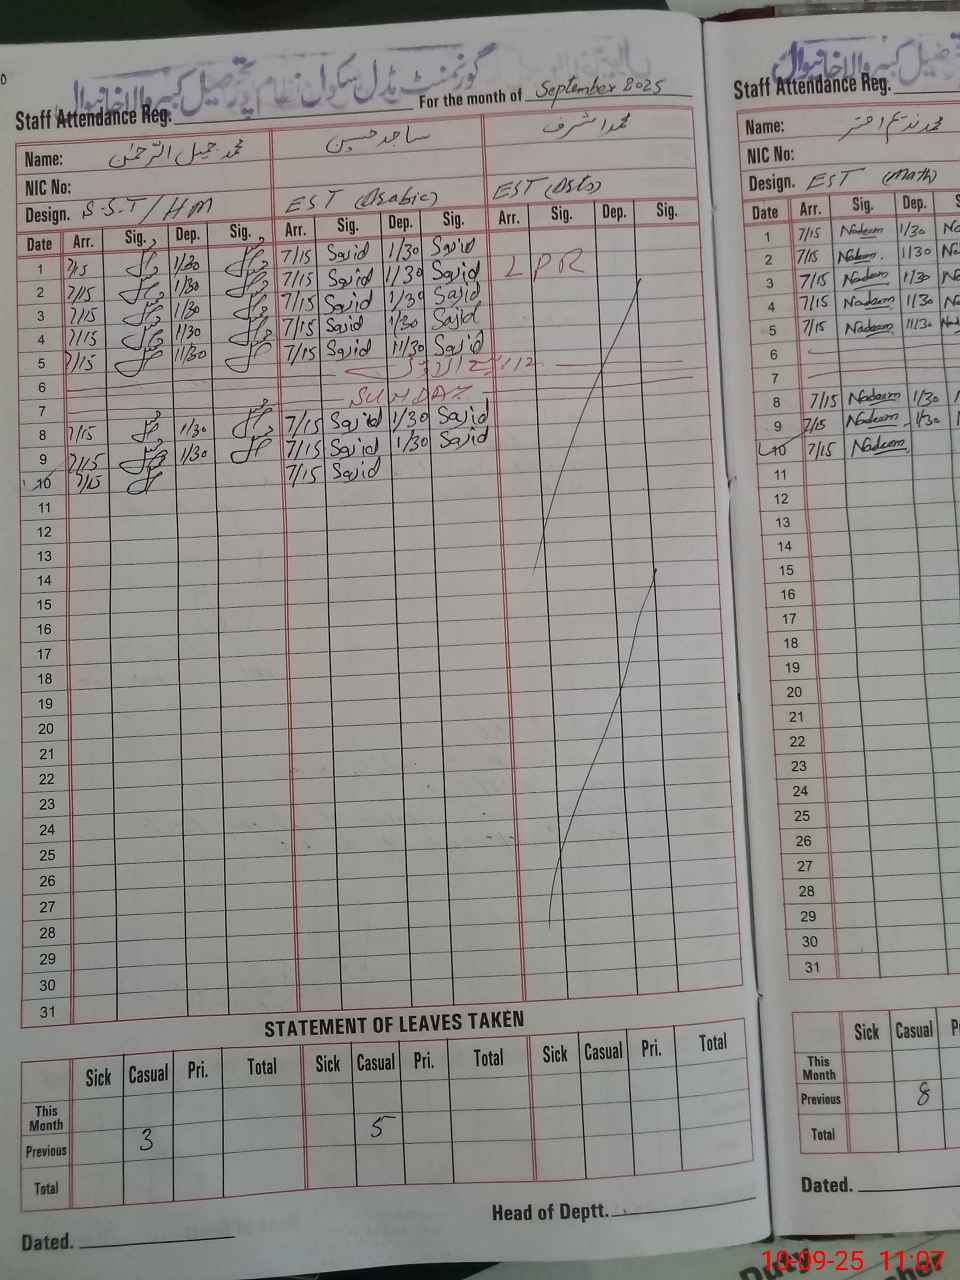 گورنمنٹ مڈل سکول نظام پور تحصیل کبیروالا خانیوال
Staff Attendance Reg. For the month of September 2025
Name: محمد جمیل الرحمٰن ساجد حسین محمد اشرف
NIC No:
Design. S.S.T/HM EST (Arabic) EST
Date Arr. Sig. Dep. Sig. Arr. Sig. Dep. Sig. Arr. Sig. Dep. Sig.
1 7/15 1/30 7/15 Sajid 1/30 Sajid LPR
2 7/15 1/30 7/15 Sajid 1/30 Sajid
3 7/15 1/30 7/15 Sajid 1/30 Sajid
4 7/15 1/30 7/15 Sajid 1/30 Sajid
5 7/15 11/30 7/15 Sajid 11/30 Sajid
6 ۱۲ ربیع الاول
7 SUNDAY
8 7/15 1/30 7/15 Sajid 1/30 Sajid
9 7/15 1/30 7/15 Sajid 1/30 Sajid
10 7/15 7/15 Sajid
11
12
13
14
15
16
17
18
19
20
21
22
23
24
25
26
27
28
29
30
31
STATEMENT OF LEAVES TAKEN
Sick Casual Pri. Total Sick Casual Pri. Total Sick Casual Pri. Total
This Month
Previous 3 5
Total
Head of Deptt.
Dated.
تحصیل کبیروالا خانیوال
Staff Attendance Reg.
Name: محمد ندیم اختر
NIC No:
Design. EST (Math)
Date Arr. Sig. Dep.
1 7/15 Nadeem 1/30
2 7/15 Nadeem 1/30
3 7/15 Nadeem 1/30
4 7/15 Nadeem 1/30
5 7/15 Nadeem 11/30
6
7
8 7/15 Nadeem 1/30
9 7/15 Nadeem 1/30
10 7/15 Nadeem
11
12
13
14
15
16
17
18
19
20
21
22
23
24
25
26
27
28
29
30
31
Sick Casual
This Month
Previous 8
Total
Dated.
Duty
10-09-25 11:07